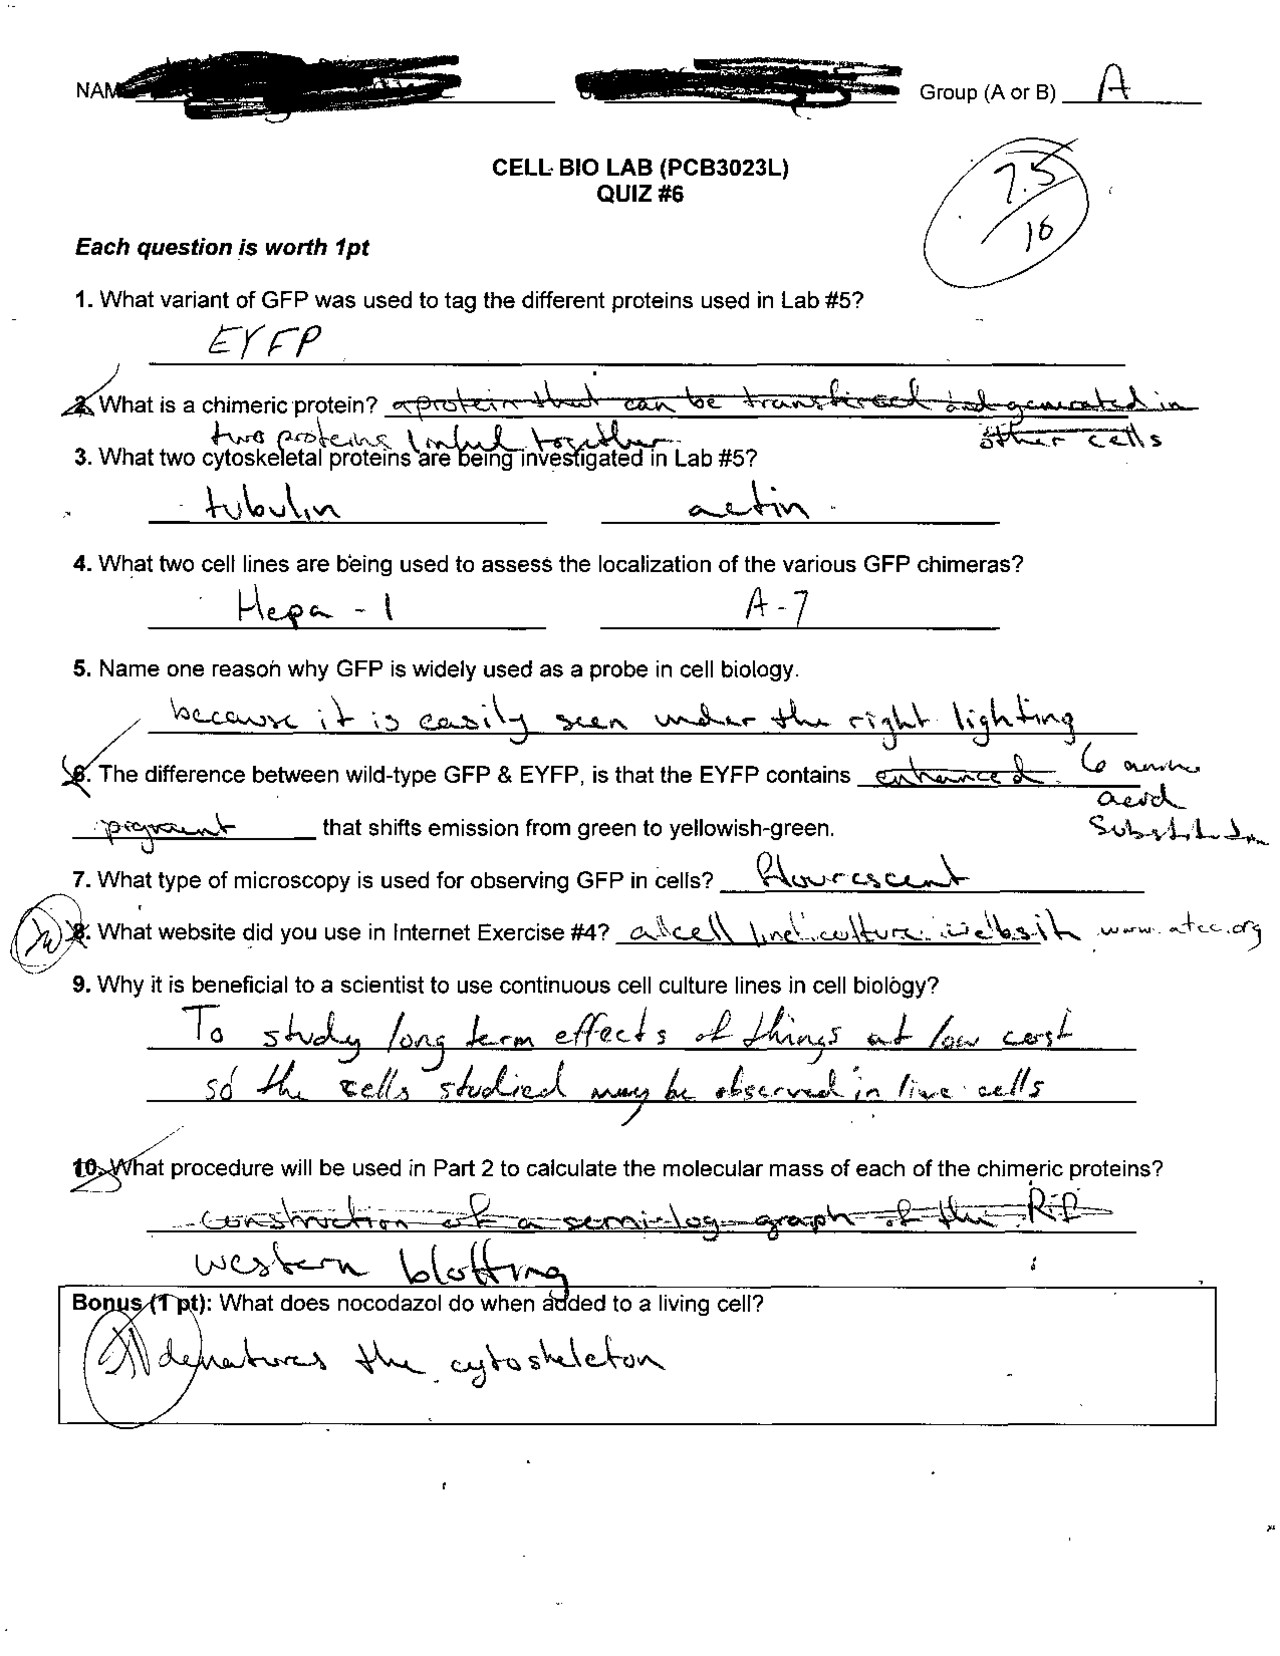 NAM
Group (A or B) A
CELL BIO LAB (PCB3023L)
QUIZ #6
7.5
10
Each question is worth 1pt
1. What variant of GFP was used to tag the different proteins used in Lab #5?
EYFP
2. What is a chimeric protein? a protein that can be transfered and generated in
two proteins linked together other cells
3. What two cytoskeletal proteins are being investigated in Lab #5?
tubulin actin
4. What two cell lines are being used to assess the localization of the various GFP chimeras?
Hepa-1 A-7
5. Name one reason why GFP is widely used as a probe in cell biology.
because it is easily seen under the right lighting
6. The difference between wild-type GFP & EYFP, is that the EYFP contains enhanced 6 amino
acid
pigment that shifts emission from green to yellowish-green. substitution
7. What type of microscopy is used for observing GFP in cells? flourescent
8. What website did you use in Internet Exercise #4? a cell line culture website www.atcc.org
9. Why it is beneficial to a scientist to use continuous cell culture lines in cell biology?
To study long term effects of things at low cost
so the cells studied may be observed in live cells
10. What procedure will be used in Part 2 to calculate the molecular mass of each of the chimeric proteins?
construction of a semi-log graph of the Rf
western blotting
Bonus (1 pt): What does nocodazol do when added to a living cell?
denatures the cytoskeleton